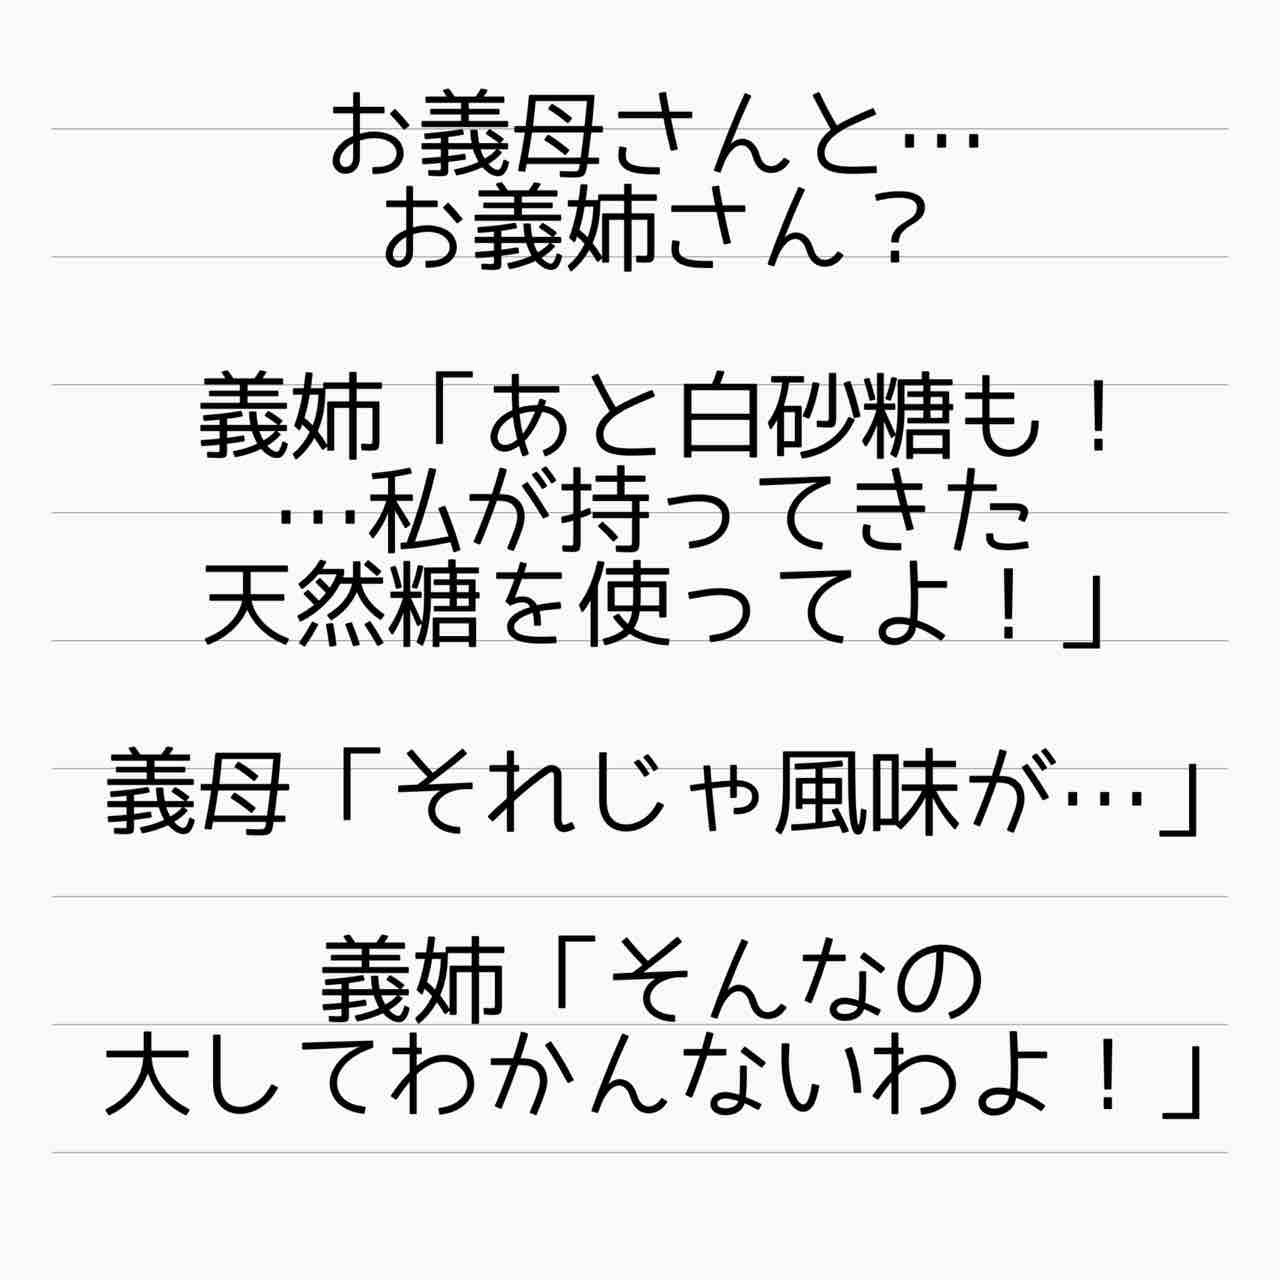 お義母さんと…
お義姉さん？
義姉「あと白砂糖も！
…私が持ってきた
天然糖を使ってよ！」
義母「それじゃ風味が…」
義姉「そんなの
大してわかんないわよ！」